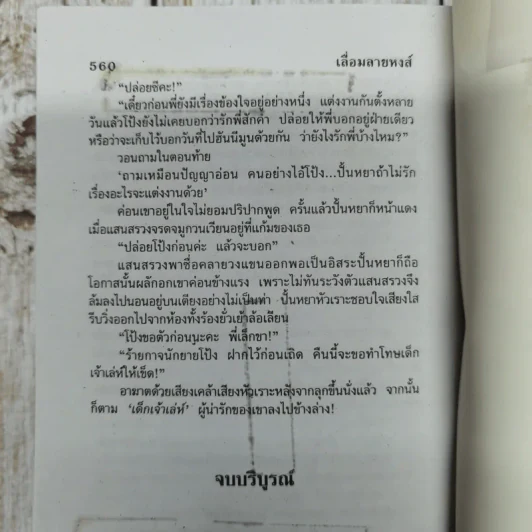 560
เลื่อมลายหงส์
“ปล่อยซีคะ!”
“เดี๋ยวก่อนพี่ยังมีเรื่องข้องใจอยู่อย่างหนึ่ง แต่งงานกันตั้งหลาย
วันแล้วโป้งยังไม่เคยบอกว่ารักพี่สักคำ ปล่อยให้พี่บอกอยู่ฝ่ายเดียว
หรือว่าจะเก็บไว้บอกวันที่ไปฮันนีมูนด้วยกัน ว่ายังไงรักพี่บ้างไหม?”
วอนถามในตอนท้าย
‘ถามเหมือนปัญญาอ่อน คนอย่างไอ้โป้ง...ปั้นหยาถ้าไม่รัก
เรื่องอะไรจะแต่งงานด้วย’
ค่อนเขาอยู่ในใจไม่ยอมปริปากพูด ครั้นแล้วปั้นหยาก็หน้าแดง
เมื่อแสนสรวงจรดจมูกวนเวียนอยู่ที่แก้มของเธอ
“ปล่อยโป้งก่อนค่ะ แล้วจะบอก”
แสนสรวงพาซื่อคลายวงแขนออกพอเป็นอิสระปั้นหยาก็ถือ
โอกาสนั้นผลักอกเขาค่อนข้างแรง เพราะไม่ทันระวังตัวแสนสรวงจึง
ล้มลงไปนอนอยู่บนเตียงอย่างไม่เป็นท่า ปั้นหยาหัวเราะชอบใจเสียงใส
รีบวิ่งออกไปจากห้องทั้งร้องยั่วเย้าล้อเลียน
“โป้งขอตัวก่อนนะคะ พี่เล็กขา!”
“ร้ายกาจนักยายโป้ง ฝากไว้ก่อนเถิด คืนนี้จะขอทำโทษเด็ก
เจ้าเล่ห์ให้เข็ด!”
อาฆาตด้วยเสียงเคล้าเสียงหัวเราะหลังจากลุกขึ้นนั่งแล้ว จากนั้น
ก็ตาม ‘เด็กเจ้าเล่ห์’ ผู้น่ารักของเขาลงไปข้างล่าง!
จบบริบูรณ์